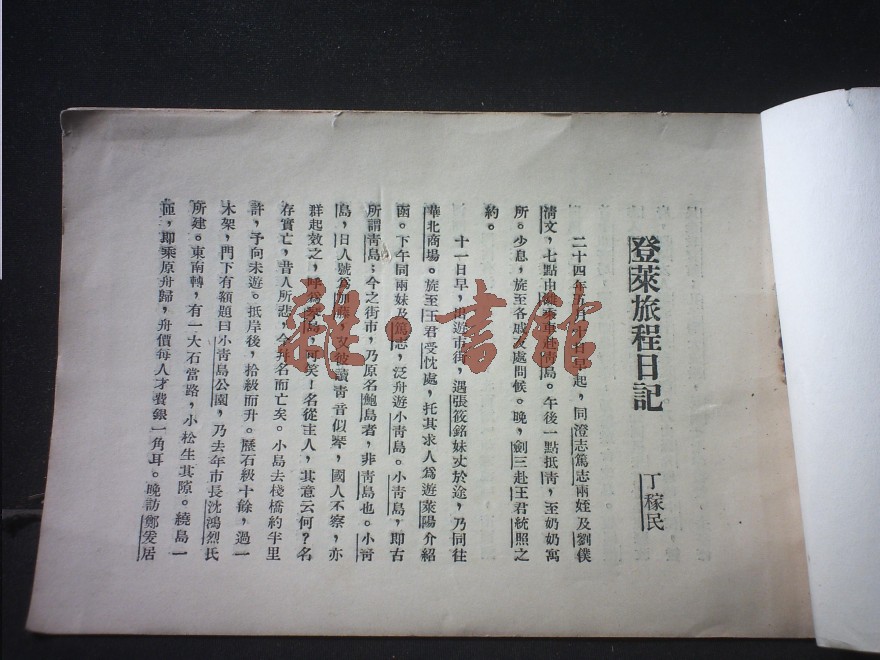 登萊旅程日記
丁稼民
二十四年五月十日早起,同澄志篤志兩姪及劉僕
清文,七點由濰乘車赴青島。午後一點抵青,至奶奶寓
所。少息,旋至各戚友處問候。晚,劍三赴王君統照之
約。
十一日早,出遊市街,遇張筱銘妹丈於途,乃同往
華北商場。旋至王君受忱處,托其求人爲遊萊陽介紹
函。下午同兩妹及篤志,泛舟遊小青島。小青島,即古
所謂青島;今之街市,乃原名鮑島者,非青島也。小青
島,日人號爲加藤,又彼讀青音似琴,國人不察,亦
群起效之,呼爲琴島,可笑!名從主人,其意云何?名
存實亡,昔人所悲,今并名而亡矣。小島去棧橋約半里
許,予向未遊。抵岸後,拾級而升。歷石級十餘,過一
木架,門下有額題曰小青島公園,乃去年市長沈鴻烈氏
所建。東南轉,有一大石當路,小松生其隙。繞島一
匝,即乘原舟歸,舟價每人才費銀一角耳。晚訪鄭爰居
雜·書館